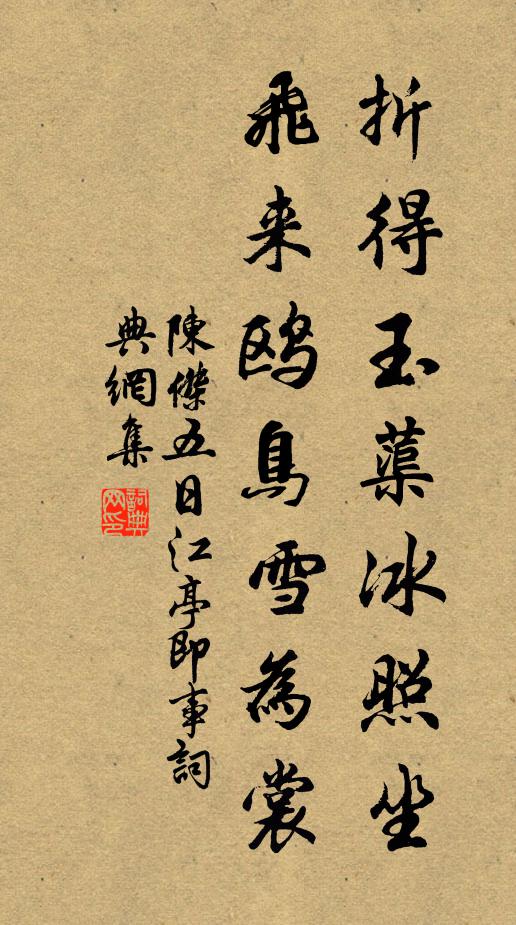 折得玉蕖冰照坐
飛来鸥鳥雪為裳
陳傑五日江亭即事詞
典網集
詞典
网印